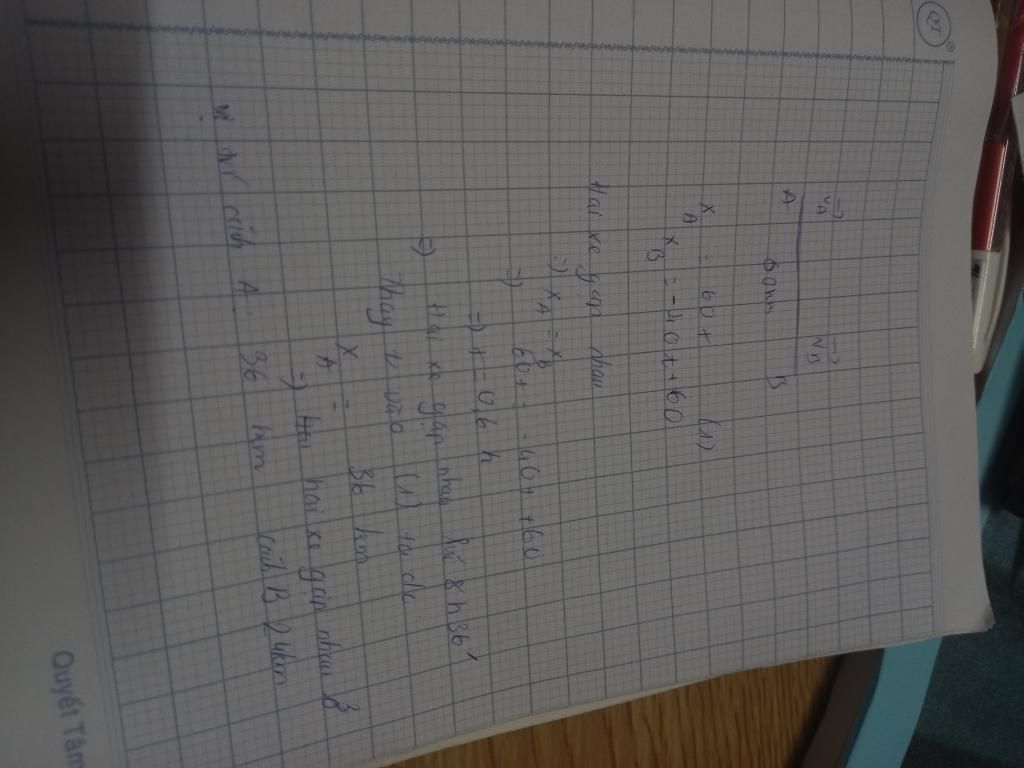 VA VB
A 60km B
xA = 60t (1)
xB = -40t + 60
Hai xe gặp nhau
=) xA = xB
=) 60t = -40t + 60
=) t = 0,6 h
=) Hai xe gặp nhau lúc 8h36'
Thay t vào (1) ta đc
xA = 36 km
=) hai xe gặp nhau ở
vị trí cách A 36 km cách B 24km
Quyết Tâm